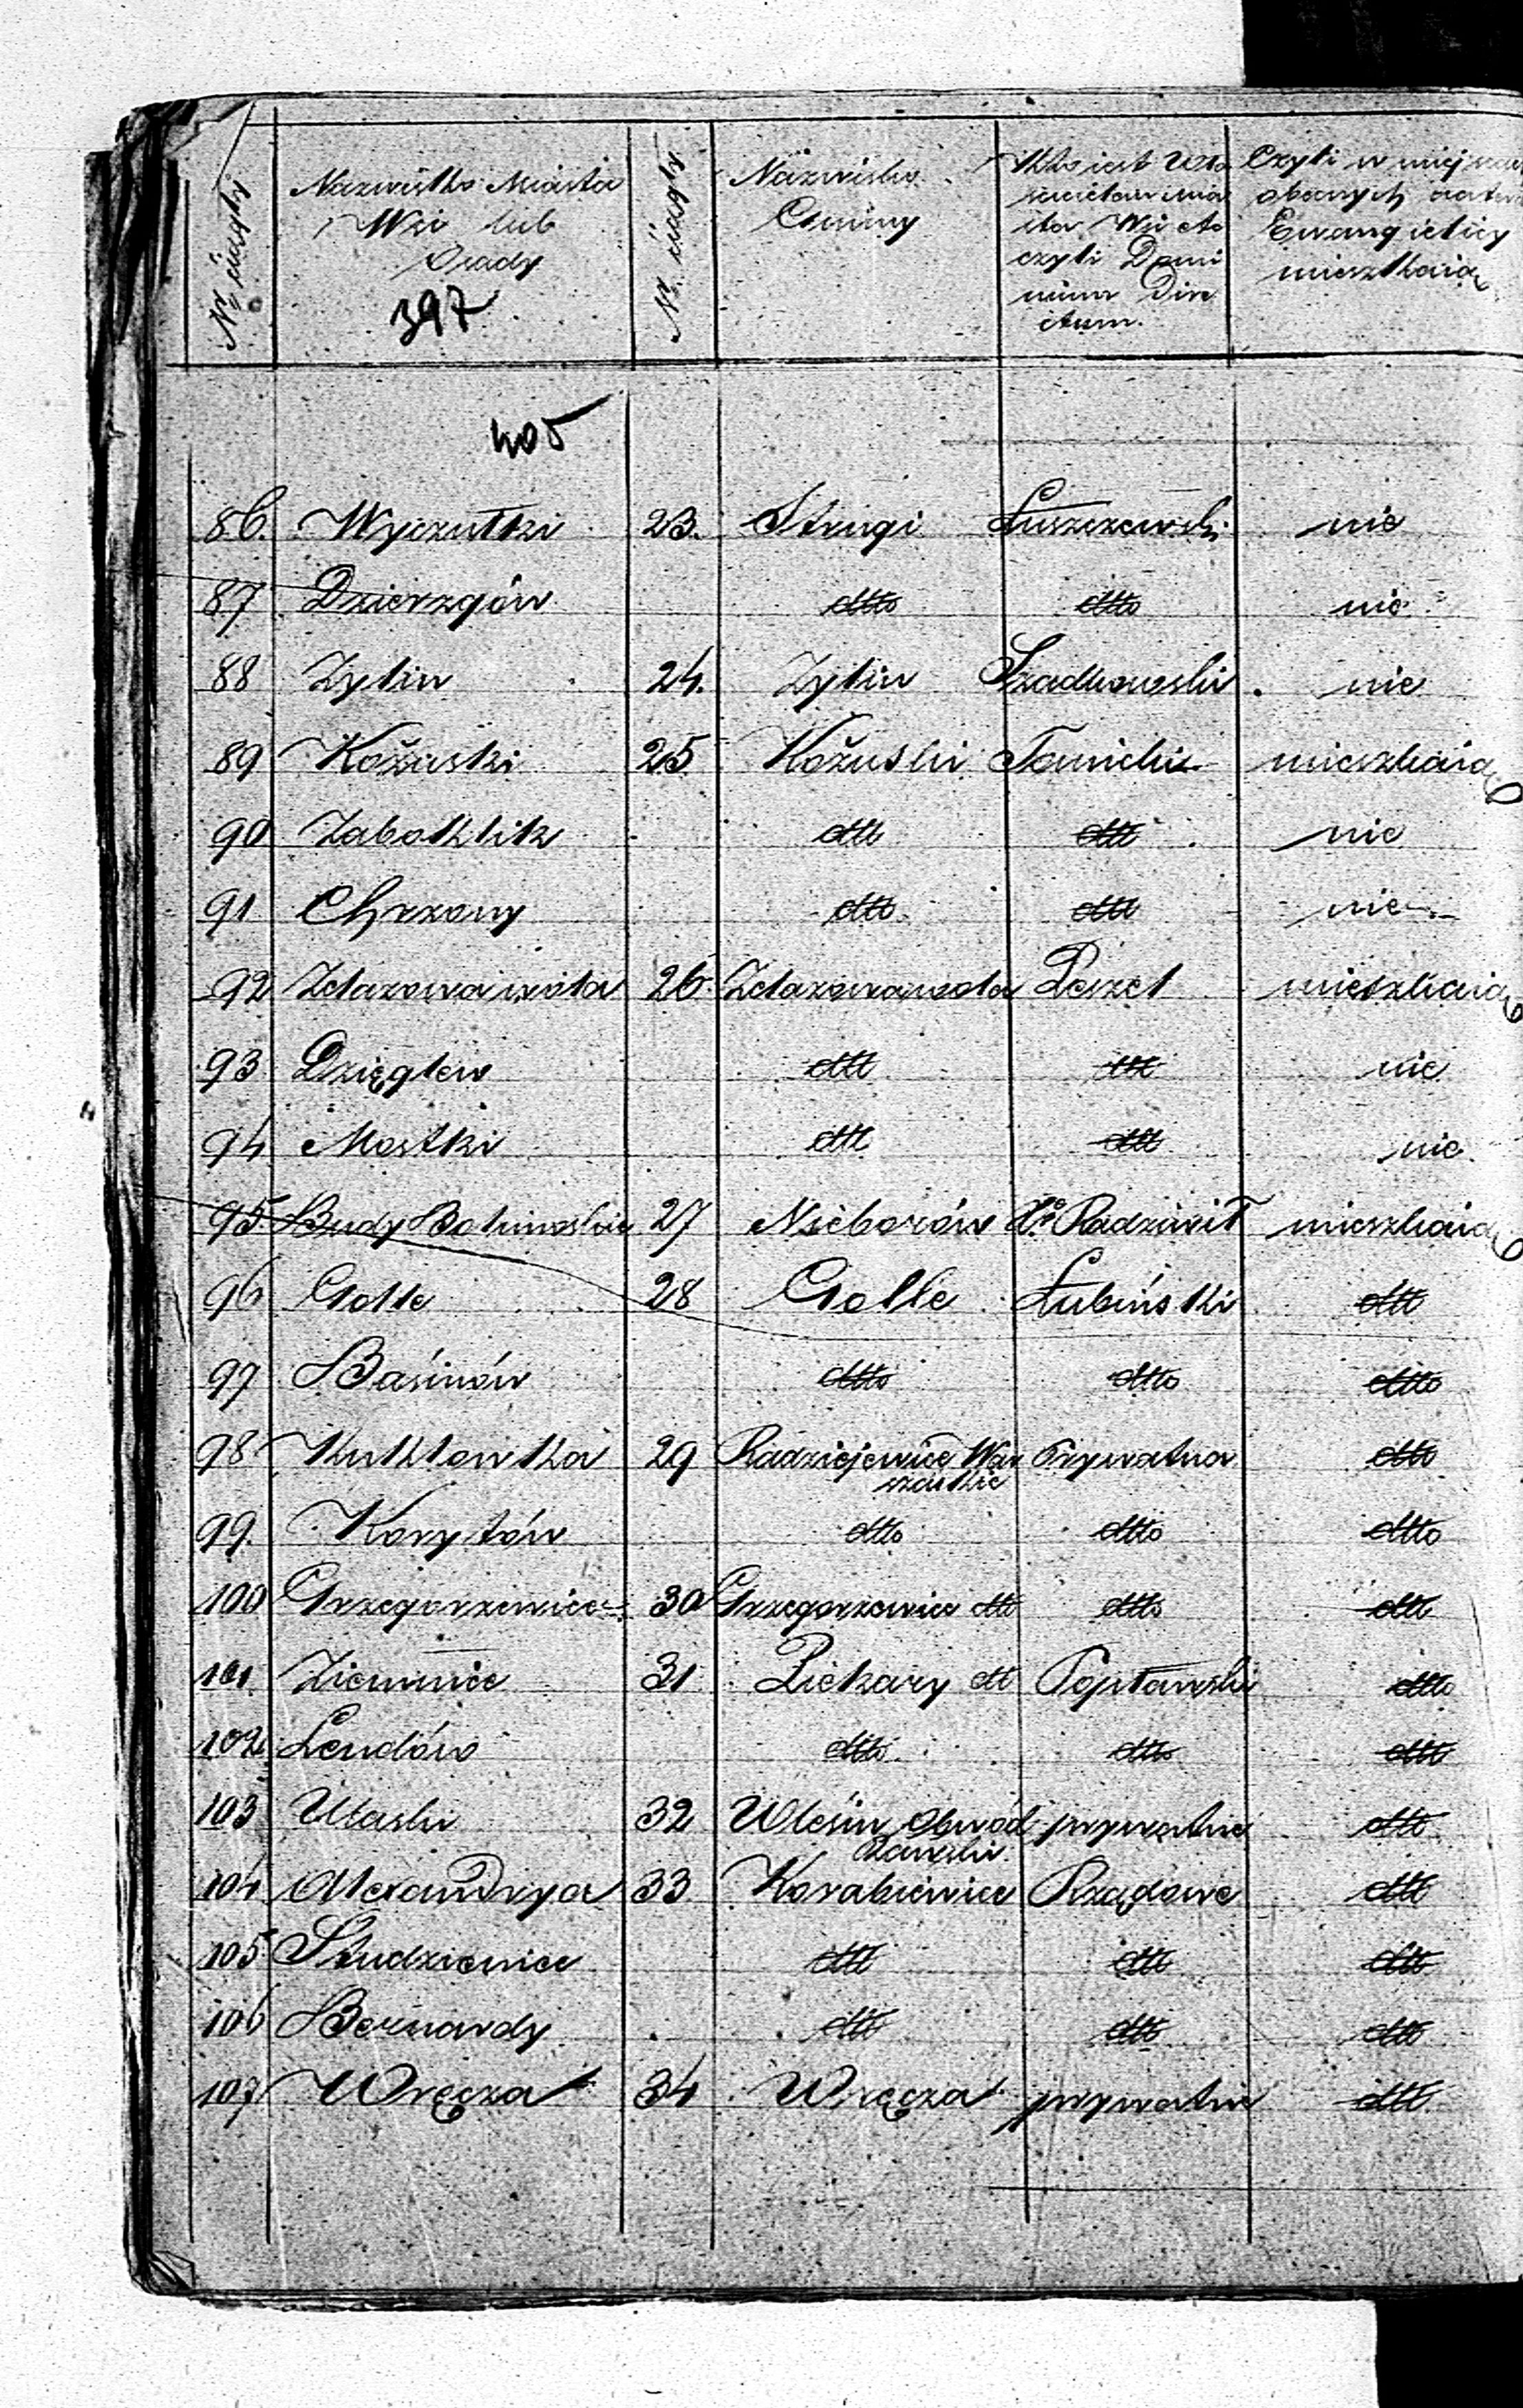 Nr ciągły
Nazwisko Miasta
Wsi lub
Osady
397
Nr. ciągły
Nazwisko
Gminy
Kto jest
czyli Domi
nium Dire
ctum.
Czyli w miejscach
obecnych
Ewangielicy
mieszkaią
405
86. Wyczułki 23. Strugi Łuszczewski nie
87 Dzierzgów dtto dtto nie
88 Zylin 24. Zylin Szadkowski nie
89 Kożuski 25 Kożuski mieszkaią
90 Zaboklik dtto dtto nie
91 Chrzony dtto dtto nie
92 Zelazowawola 26 Zelazowawola Peszel mieszkaią
93 Dzięglew dtto dtto nie
94 Mostki dtto dtto nie
95 Budy Bolimoskie 27 Nieborów Radziwił mieszkaią
96 Golle 28 Golle Łubiński dtto
97 Basinów dtto dtto dtto
98 Kuklowka 29 Radziejewice War Prywatna dtto
szawskie
99. Korytów dtto dtto dtto
100 Grzegorzewice 30 Grzegorzewice dtto dtto dtto
101. Ziemnice 31 Piekary dtto Popławski dtto
102 Lendów dtto dtto dtto
103 Ulaski 32 Obwód prywatne dtto
Rawski
104 Alexandrya 33 Korabiewice Rządowe dtto
105 Studzieniec dtto dtto dtto
106 Bernardy dtto dtto dtto
107 Wręcza 34 Wręcza prywatne dtto